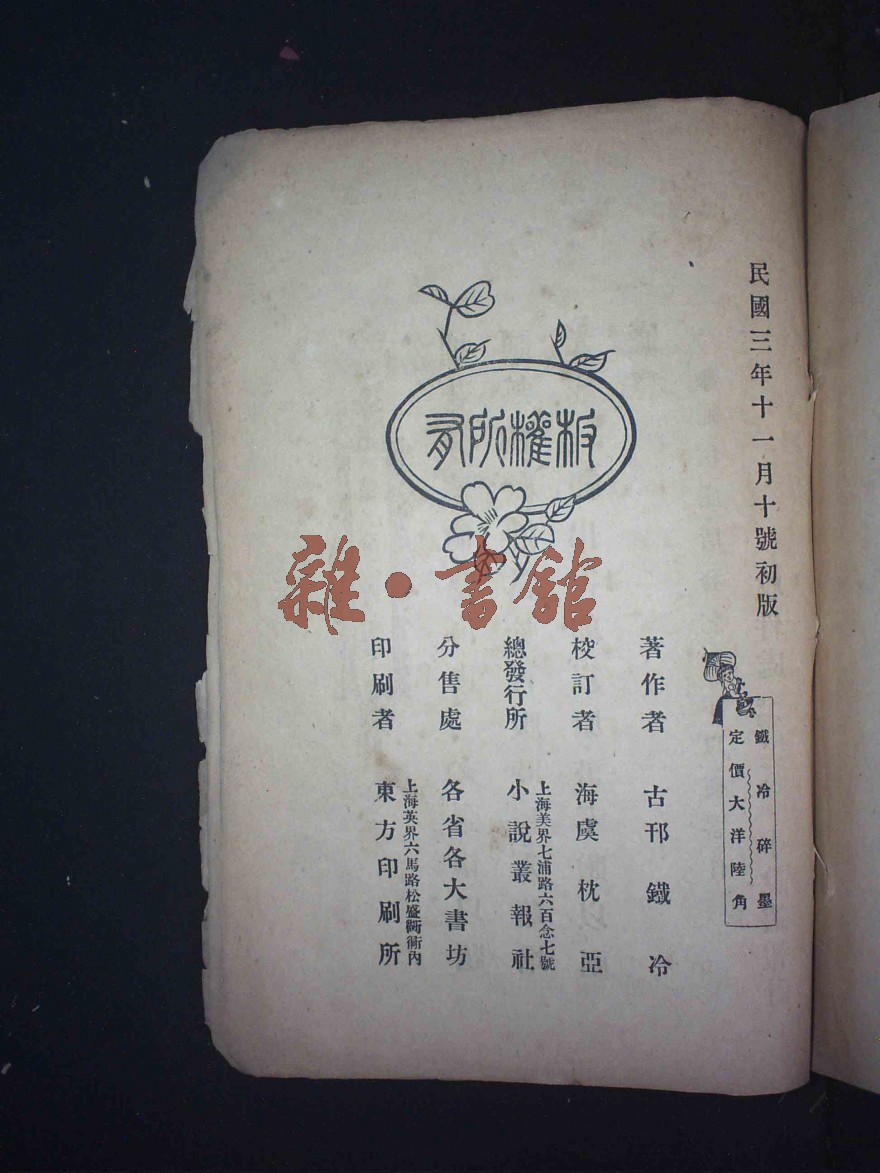 民國三年十一月十號初版
鐵冷碎墨
定價大洋陸角
板權所有
著作者 古邗鐵冷
校訂者 海虞枕亞
總發行所 上海美界七浦路六百念七號
小說叢報社
分售處 各省各大書坊
印刷者 上海英界六馬路松盛衖衖內
東方印刷所
雜·書館